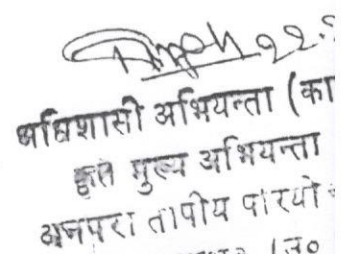 22.
अधिशासी अभियन्ता (का
कृते मुख्य अभियन्ता
अनपरा तापीय परियो
(उ०